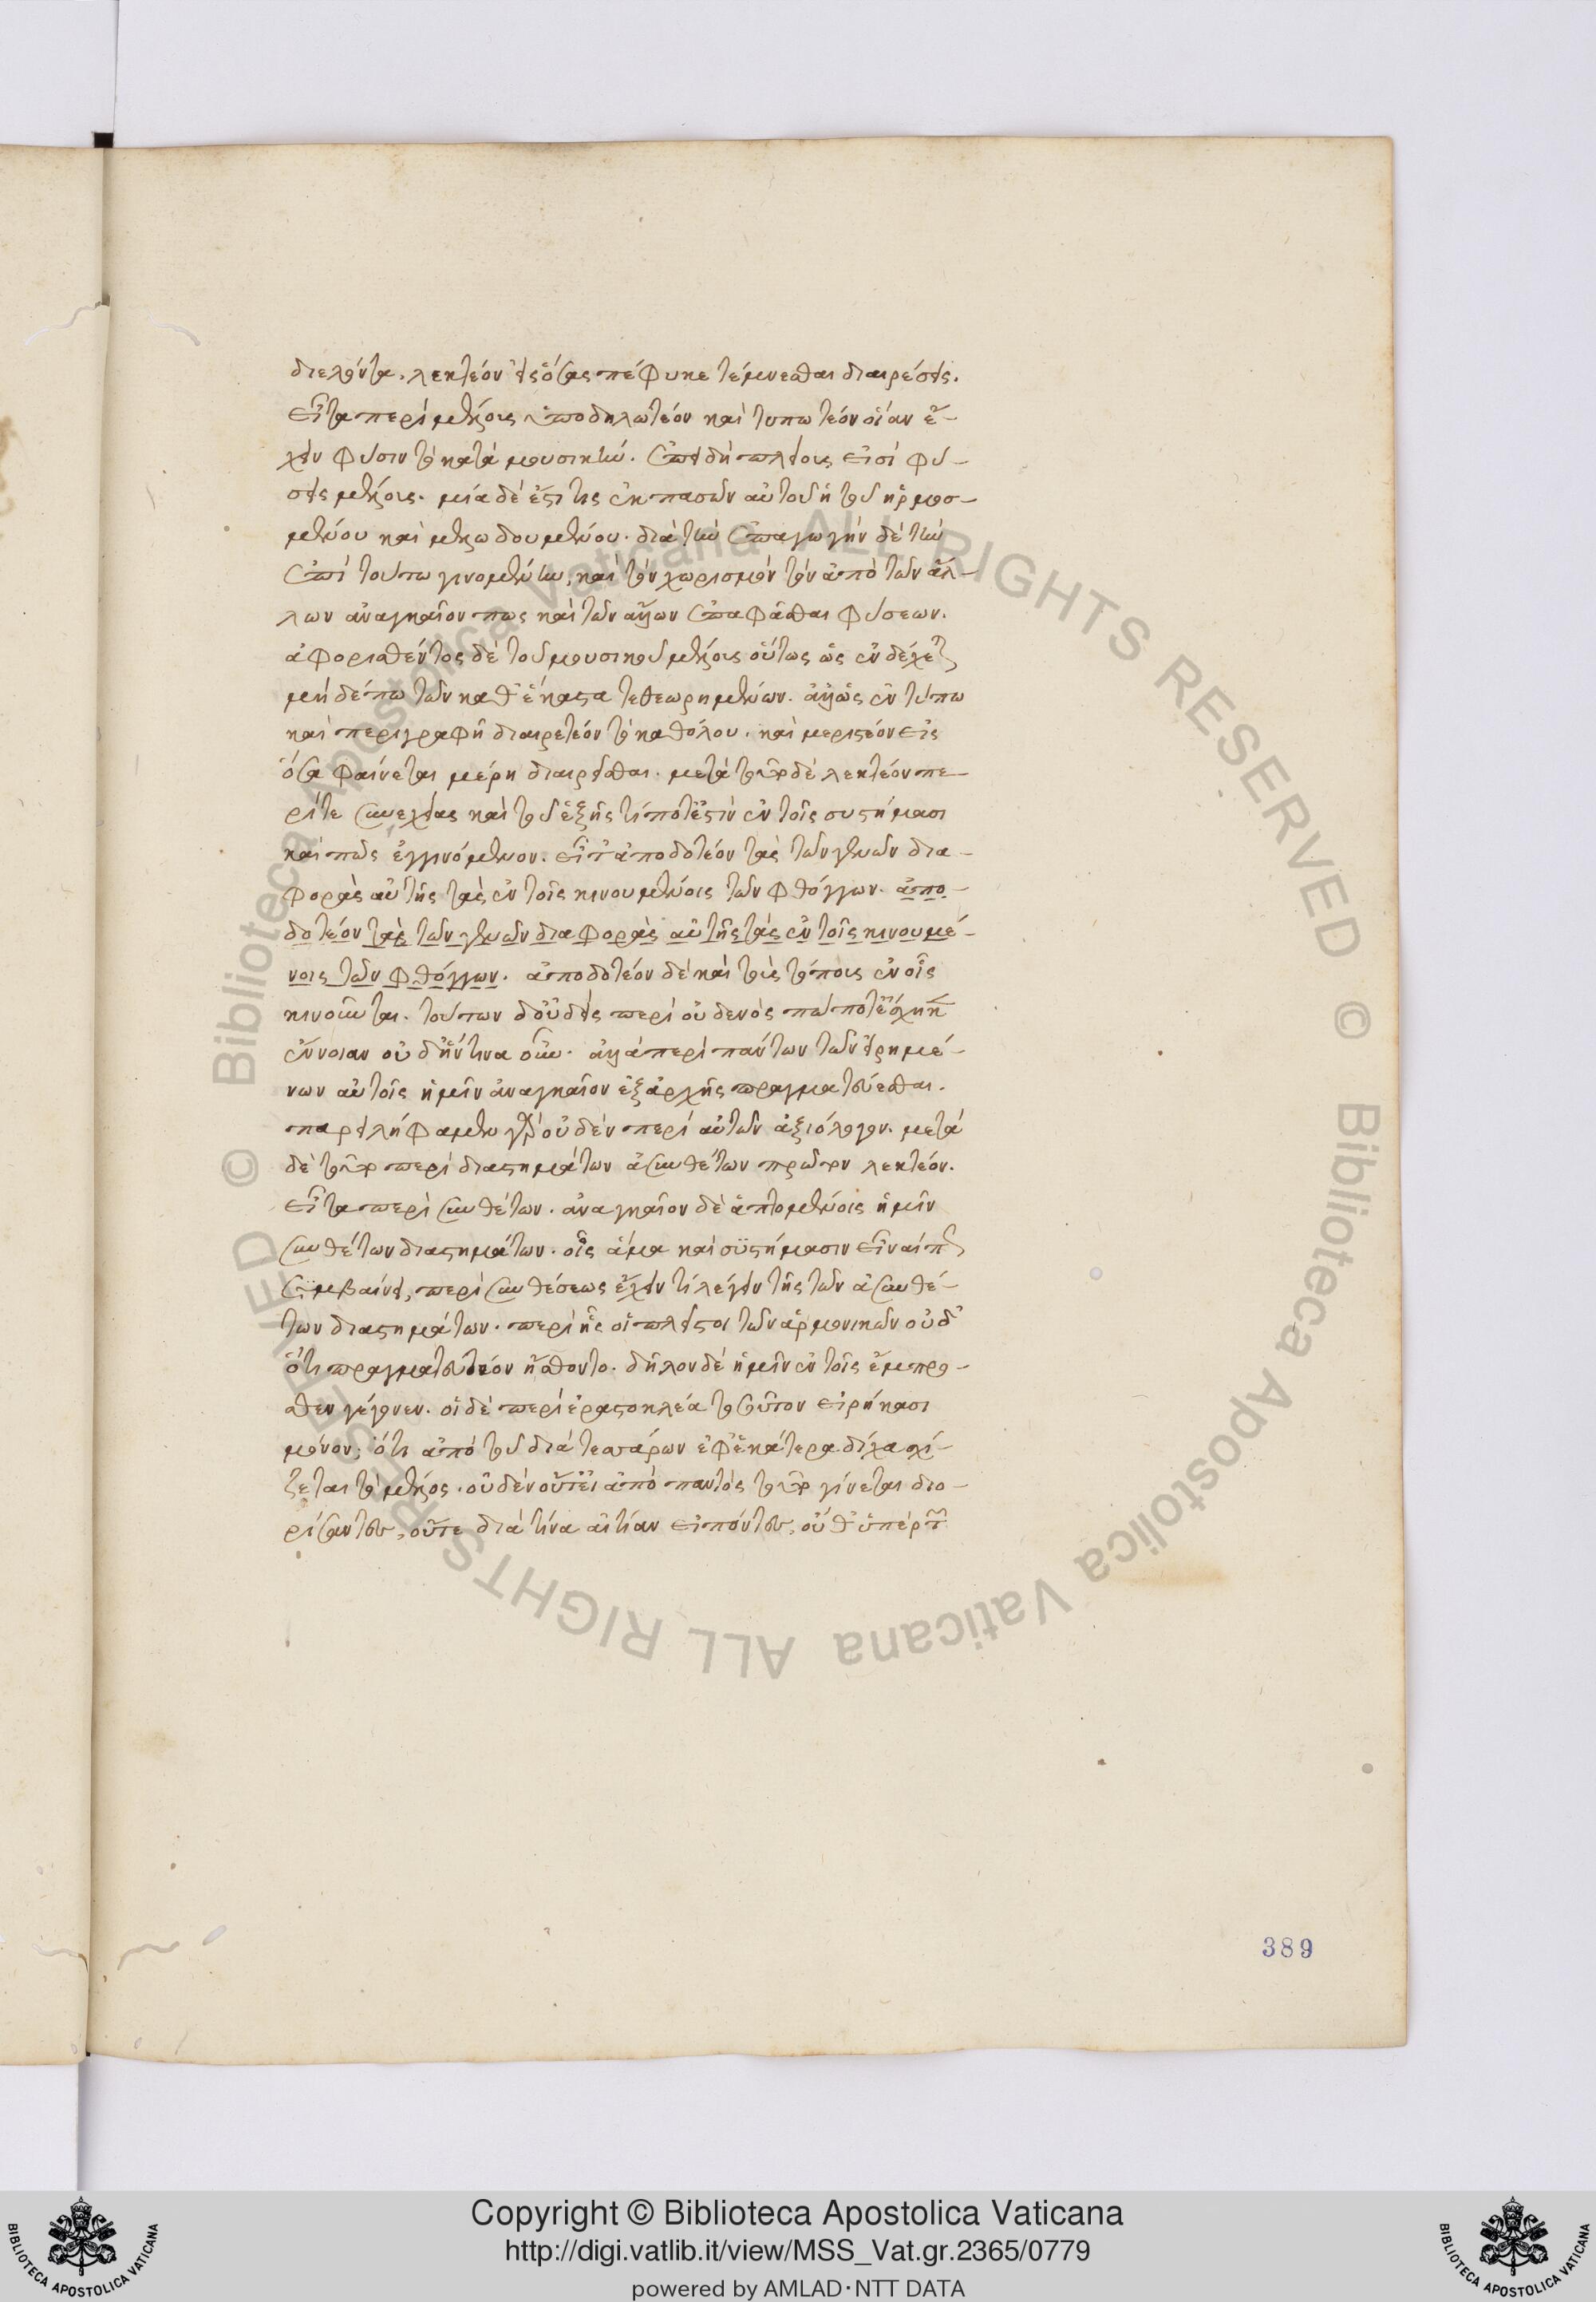 διελόντα. λεκτέον εἰς ὅσας πέφυκε τέμνεσθαι διαιρέσεις.
εἶτα περὶ μέλους ὑποδηλωτέον καὶ τυπωτέον οἵαν ἔ-
χειν φύσιν τὸ κατὰ μουσικήν. ἐπειδὴ πλείους εἰσὶ φύ-
σεις μέλους. μία δέ ἐστί τις ἐκ πασῶν αὐτοῦ ἡ τοῦ ἡρμοσ-
μένου καὶ μελῳδουμένου. διὰ τὴν ἐπαγωγὴν δὲ τὴν
ἐπὶ τούτῳ γινομένην, καὶ τὸν χωρισμὸν τὸν ἀπὸ τῶν ἄλ-
λων ἀναγκαῖον πως καὶ τῶν ἄλλων ἐπαφᾶσθαι φύσεων.
ἀφορισθέντος δὲ τοῦ μουσικοῦ μέλους οὕτως ὡς ἐνδέχεται
μηδέπω τῶν καθ' ἕκαστα τεθεωρημένων. ἀλλ' ὡς ἐν τύπῳ
καὶ περιγραφῇ διαιρετέον τὸ καθόλου. καὶ μεριστέον εἰς
ὅσα φαίνεται μέρη διαιρεῖσθαι. μετὰ τοῦτο δὲ λεκτέον πε-
ρί τε συνεχείας καὶ τοῦ ἑξῆς τί ποτ' ἐστὶν ἐν τοῖς συστήμασι
καὶ πῶς ἐγγινόμενον. εἶτ' ἀποδοτέον τὰς τῶν γενῶν δια-
φορὰς αὐτῆς τὰς ἐν τοῖς κινουμένοις τῶν φθόγγων. ἀπο-
δοτέον τὰς τῶν γενῶν διαφορὰς αὐτῆς τὰς ἐν τοῖς κινουμέ-
νοις τῶν φθόγγων. ἀποδοτέον δὲ καὶ τοὺς τόπους ἐν οἷς
κινοῦνται. τούτων δ' οὐδεὶς περὶ οὐδενὸς πώποτ' ἔσχηκεν
ἔννοιαν οὐδ' ἥντινα οὖν. ἀλλὰ περὶ πάντων τῶν εἰρημέ-
νων αὐτοῖς ἡμῖν ἀναγκαῖον ἐξ ἀρχῆς πραγματεύεσθαι.
παρειλήφαμεν γὰρ οὐδὲν περὶ αὐτῶν ἀξιόλογον. μετὰ
δὲ τοῦτο περὶ διαστημάτων ἀσυνθέτων πρῶτον λεκτέον.
εἶτα περὶ συνθέτων. ἀναγκαῖον δὲ ἁπτομένοις ἡμῖν
συνθέτων διαστημάτων. οἷς ἅμα καὶ συστήμασιν εἶναί πως
συμβαίνει, περὶ συνθέσεως ἔχειν τι λέγειν τῆς τῶν ἀσυνθέ-
των διαστημάτων. περὶ ἧς οἱ πλεῖστοι τῶν ἁρμονικῶν οὐδ'
ὅτι πραγματευτέον ᾔσθοντο. δῆλον δὲ ἡμῖν ἐν τοῖς ἔμπρο-
σθεν γέγονεν. οἱ δὲ περὶ ἐρατοκλέα τοσοῦτον εἰρήκασι
μόνον; ὅτι ἀπὸ τοῦ διὰ τεσσάρων ἐφ' ἑκάτερα δίχα σχί-
ζεται τὸ μέλος. οὐδὲν οὔτ' εἰ ἀπὸ παντὸς τοῦτο γίνεται διο-
ρίσαντες, οὔτε διὰ τίνα αἰτίαν εἰπόντες, οὔθ' ὑπὲρ τῶν
389
Copyright © Biblioteca Apostolica Vaticana
http://digi.vatlib.it/view/MSS_Vat.gr.2365/0779
powered by AMLAD·NTT DATA